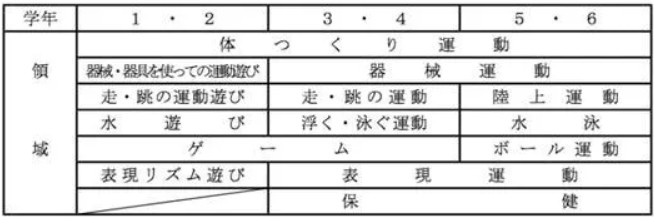 学年 1・2 3・4 5・6
体つくり運動
領 器械・器具を使っての運動遊び 器械運動
走・跳の運動遊び 走・跳の運動 陸上運動
水遊び 浮く・泳ぐ運動 水泳
域 ゲーム ボール運動
表現リズム遊び 表現運動
保健